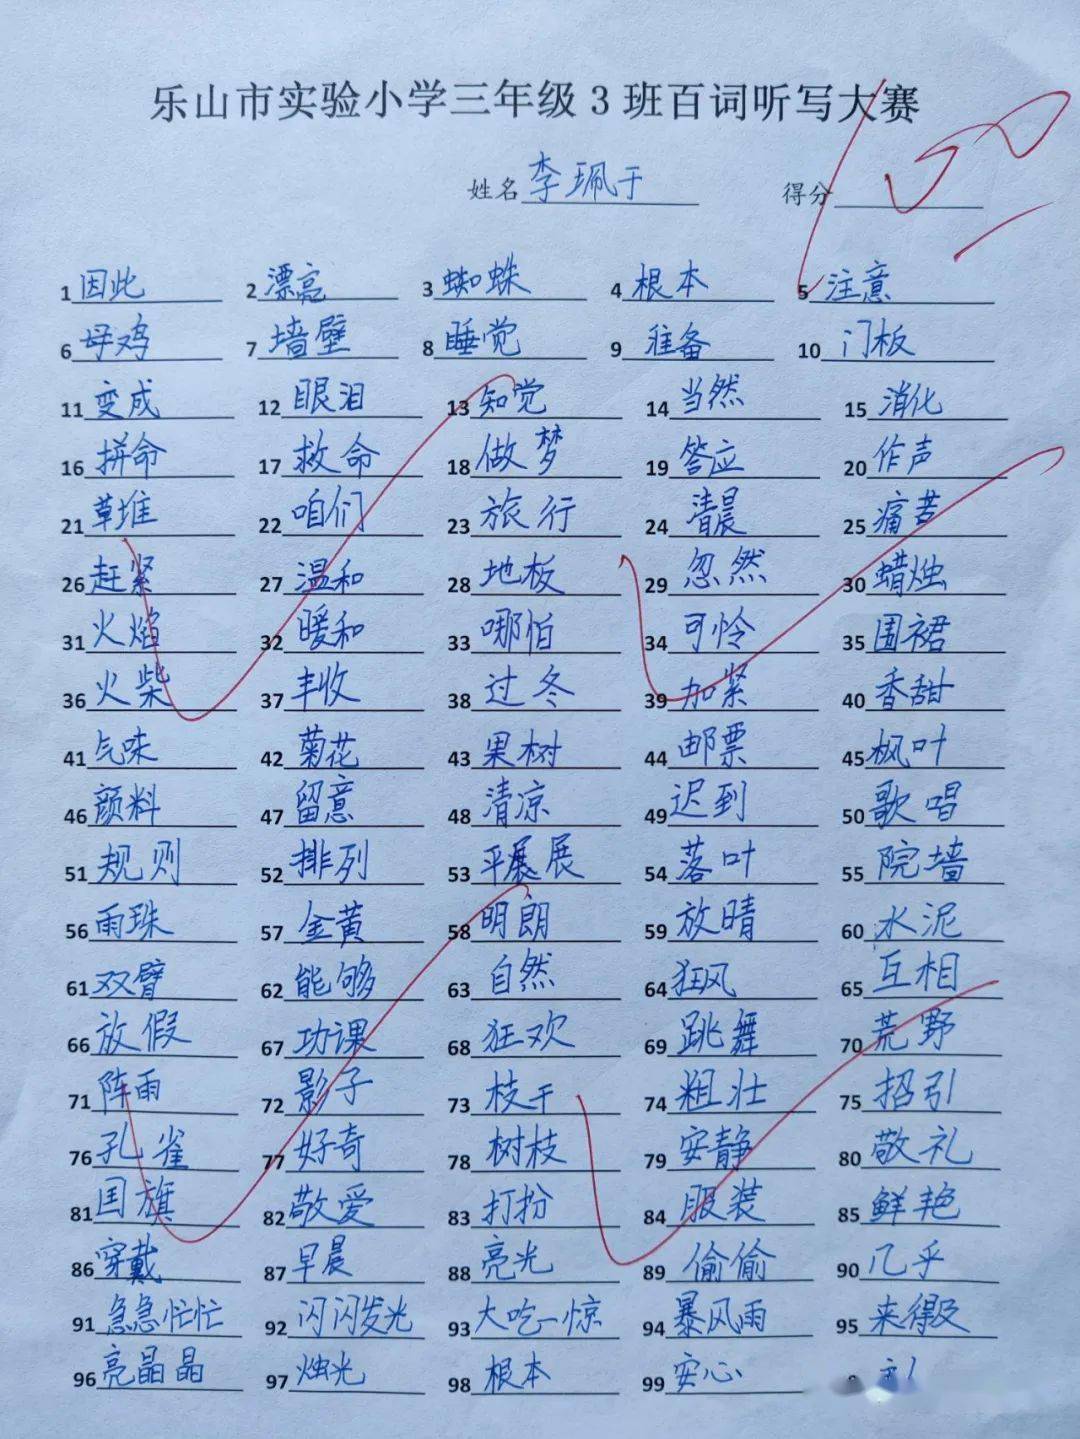 乐山市实验小学三年级3班百词听写大赛
姓名 李珮于 得分 100
1 因此 2 漂亮 3 蜘蛛 4 根本 5 注意
6 母鸡 7 墙壁 8 睡觉 9 准备 10 门板
11 变成 12 眼泪 13 知觉 14 当然 15 消化
16 拼命 17 救命 18 做梦 19 答应 20 作声
21 草堆 22 咱们 23 旅行 24 清晨 25 痛苦
26 赶紧 27 温和 28 地板 29 忽然 30 蜡烛
31 火焰 32 暖和 33 哪怕 34 可怜 35 围裙
36 火柴 37 丰收 38 过冬 39 加紧 40 香甜
41 气味 42 菊花 43 果树 44 邮票 45 枫叶
46 颜料 47 留意 48 清凉 49 迟到 50 歌唱
51 规则 52 排列 53 平展展 54 落叶 55 院墙
56 雨珠 57 金黄 58 明朗 59 放晴 60 水泥
61 双臂 62 能够 63 自然 64 狂风 65 互相
66 放假 67 功课 68 狂欢 69 跳舞 70 荒野
71 阵雨 72 影子 73 枝干 74 粗壮 75 招引
76 孔雀 77 好奇 78 树枝 79 安静 80 敬礼
81 国旗 82 敬爱 83 打扮 84 服装 85 鲜艳
86 穿戴 87 早晨 88 亮光 89 偷偷 90 几乎
91 急急忙忙 92 闪闪发光 93 大吃一惊 94 暴风雨 95 来得及
96 亮晶晶 97 烛光 98 根本 99 安心